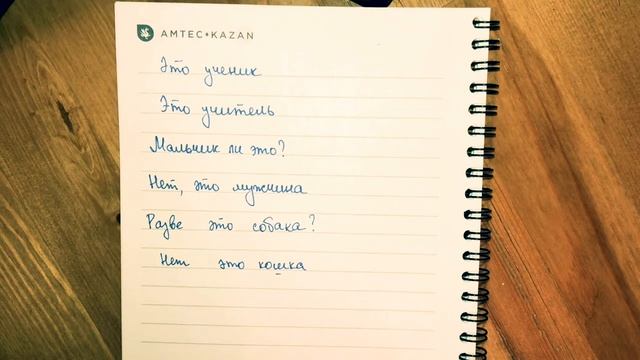 AMTEC•KAZAN
Это ученик
Это учитель
Мальчик ли это?
Нет, это мужчина
Разве это собака?
Нет это кошка